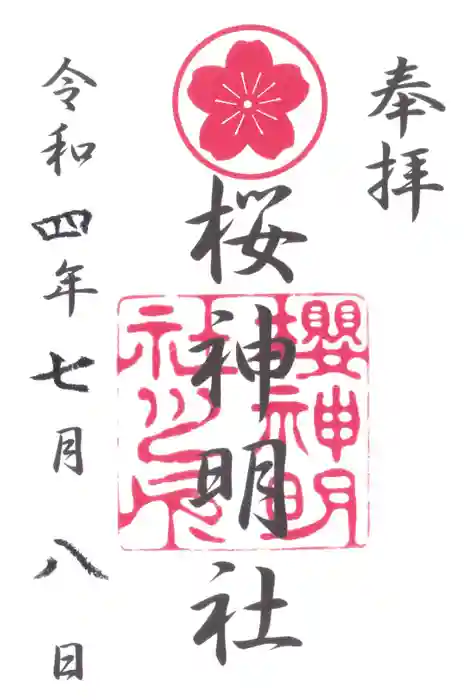 奉拝
桜神明社
櫻神明社之印
令和四年七月八日